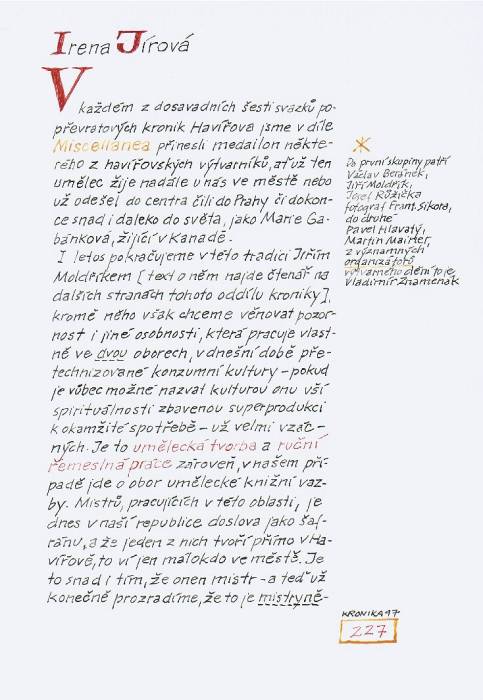 Irena Jírová
V každém z dosavadních šesti svazků po-
převratových kronik Havířova jsme v díle
Miscellanea přinesli medailon někte-
rého z havířovských výtvarníků, ať už ten
umělec žije nadále u nás ve městě nebo
už odešel do centra čili do Prahy či dokon-
ce snad i daleko do světa, jako Marie Ga-
bánková, žijící v Kanadě.
I letos pokračujeme v této tradici Jiřím
Moldříkem [text o něm najde čtenář na
dalších stranách tohoto oddílu kroniky],
kromě něho však chceme věnovat pozor-
nost i jiné osobnosti, která pracuje vlast-
ně ve dvou oborech, v dnešní době pře-
technizované konzumní kultury – pokud
je vůbec možné nazvat kulturou onu vší
spirituálnosti zbavenou superprodukci
k okamžité spotřebě – už velmi vzác-
ných. Je to umělecká tvorba a ruční
řemeslná práce zároveň, v našem pří-
padě jde o obor umělecké knižní vaz-
by. Mistrů, pracujících v této oblasti, je
dnes v naší republice doslova jako šaf-
ránu, a že jeden z nich tvoří přímo v Ha-
vířově, to ví jen málokdo ve městě. Je
to snad i tím, že onen mistr – a teď už
konečně prozradíme, že to je mistryně –
*
Do první skupiny patří
Václav Beránek,
Jiří Moldřík,
Josef Růžička
fotograf Frant. Sikora,
do druhé
Pavel Hlavatý,
Martin Mainer,
z významných
organizátorů
výtvarného dění to je
Vladimír Znamenák
KRONIKA 97
227